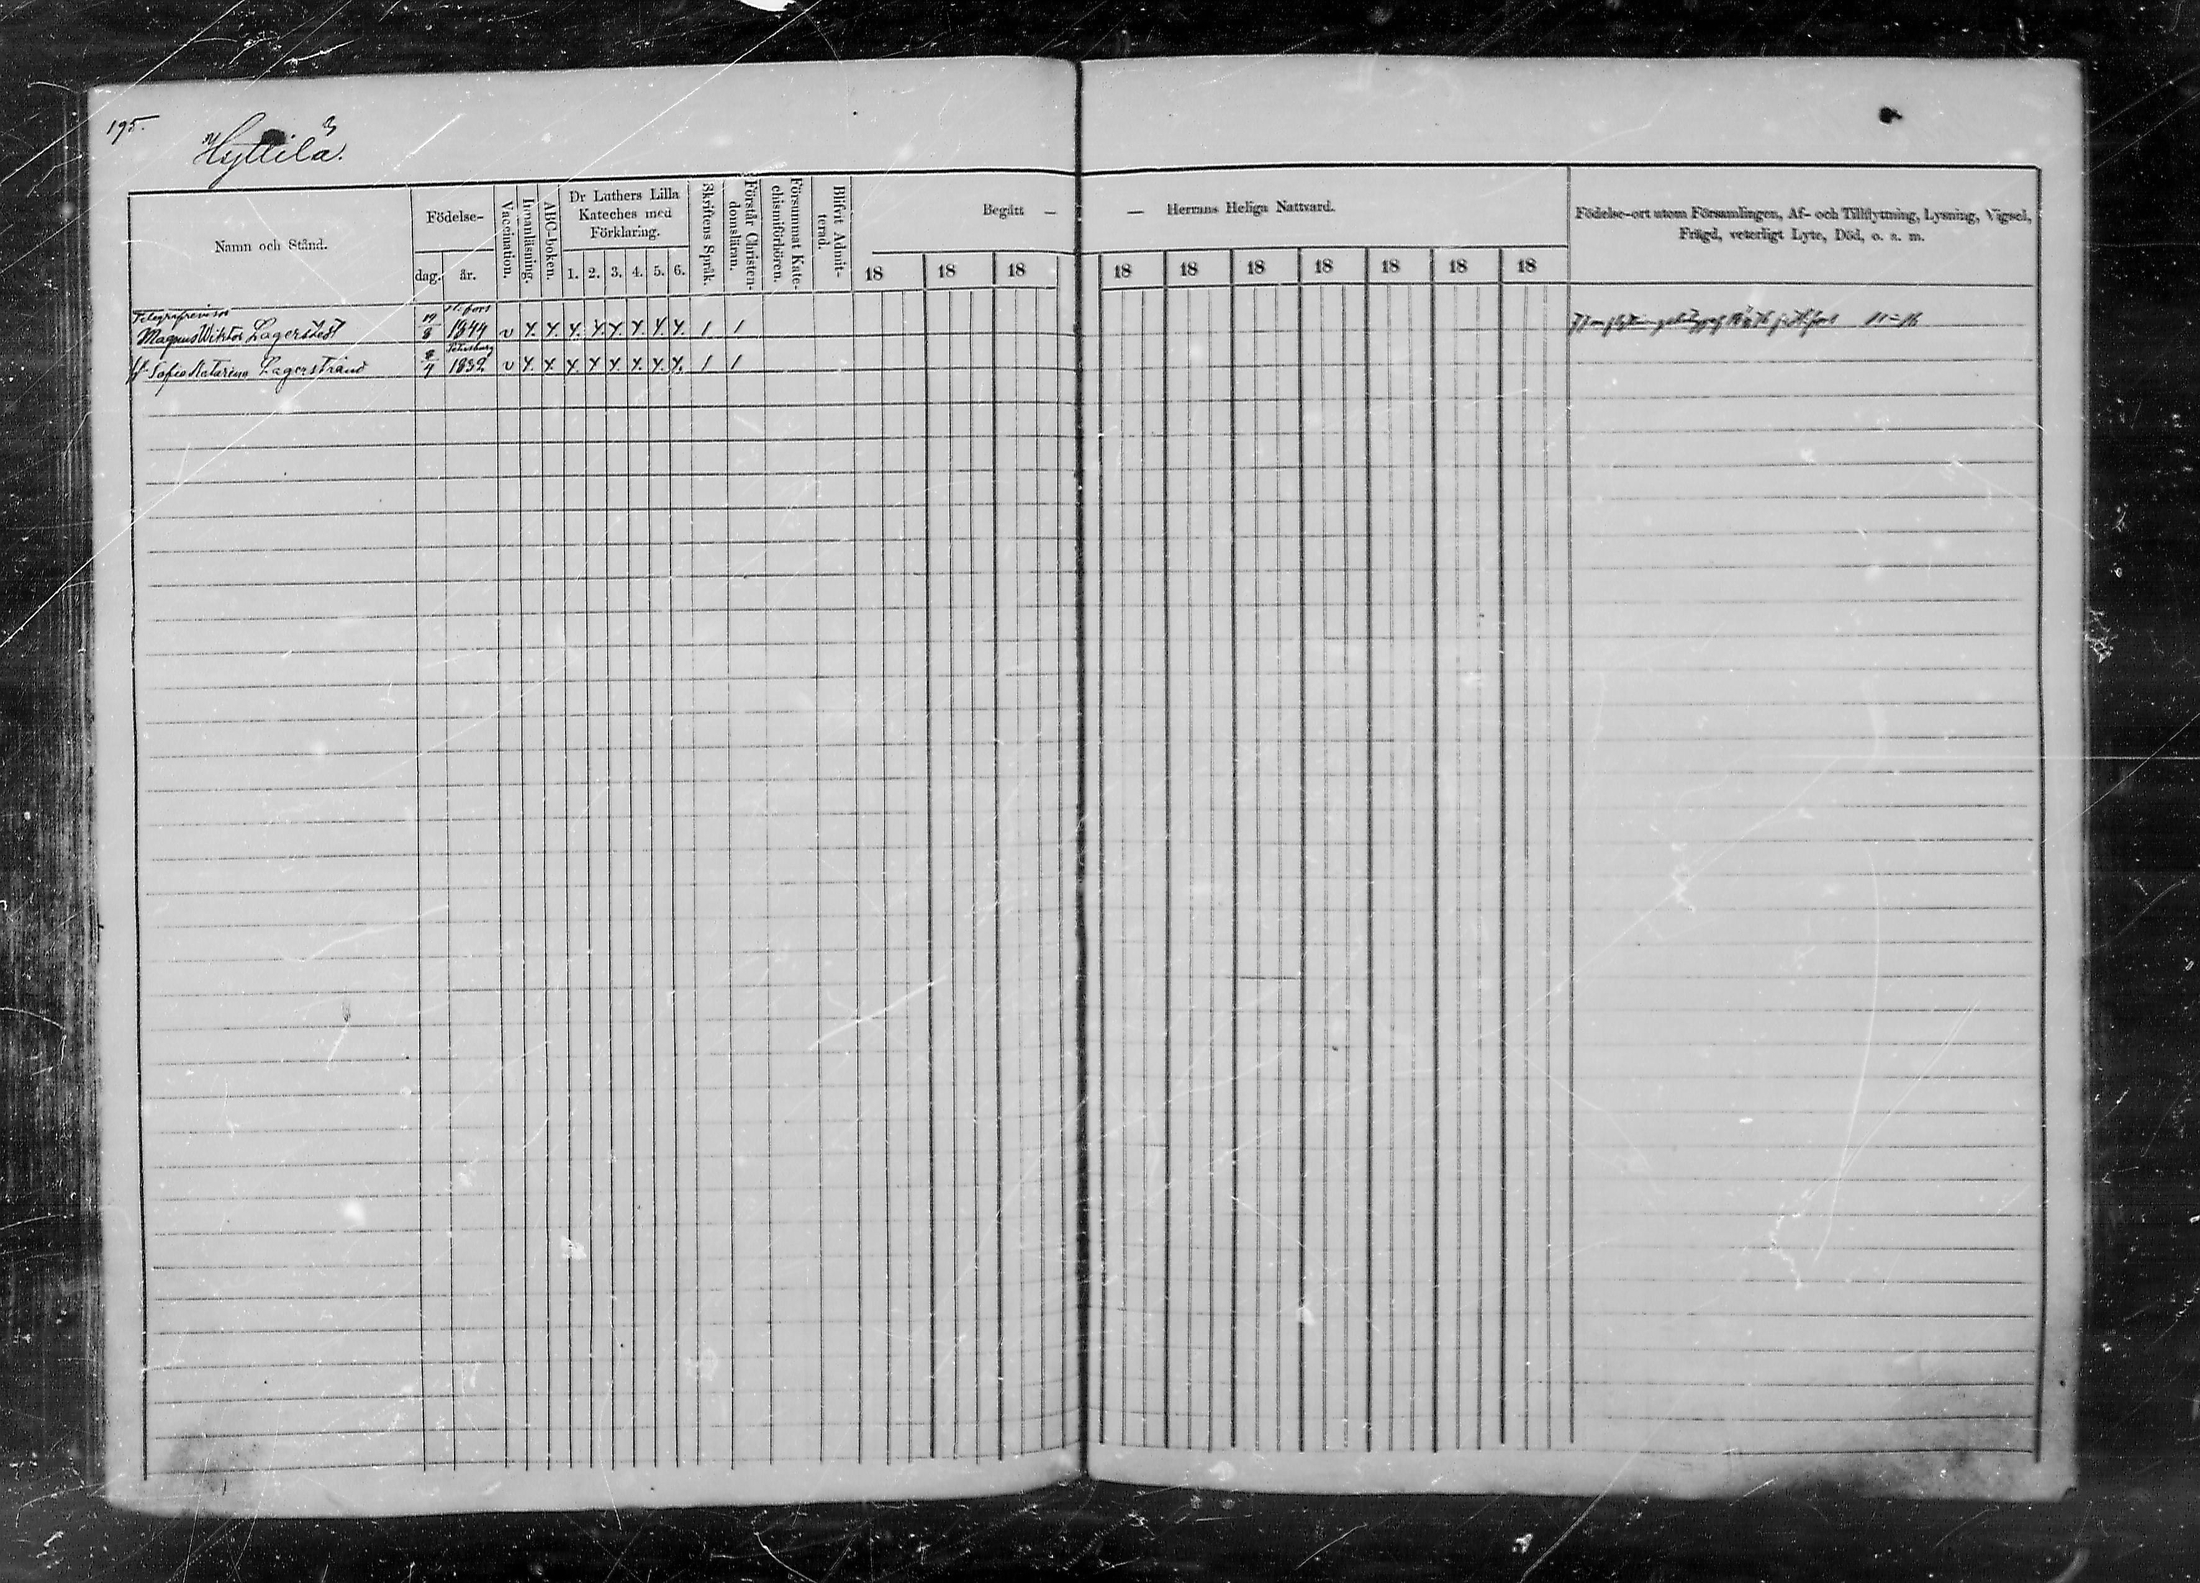 195.
Hyttilä.
Namn och Stånd.
Födelse-
dag.
år.
Vaccination.
Innanläsning.
ABC-boken.
Dr Luthers Lilla
Kateches med
Förklaring.
1. 2. 3. 4. 5. 6.
Skriftens Språk.
Förstår Christen-
domsläran.
Försummat Kate-
chismiförhören.
Blifvit Admit-
terad.
Begått —
— Herrans Heliga Nattvard.
18 18 18 18 18 18 18 18 18 18
Födelse-ort utom Församlingen, Af- och Tillflyttning, Lysning, Vigsel,
Frägd, veterligt Lyte, Död, o. s. m.
Telegrafrevisor H:fors
Magnus Wiktor Lagerstedt 19/8 1844 v Y. Y. Y. Y. Y. Y. Y. Y. 1 1
Petersburg
Sofia Katarina Lagerstrand 8/4 1832 v Y. Y. Y. Y. Y. Y. Y. Y. 1 1